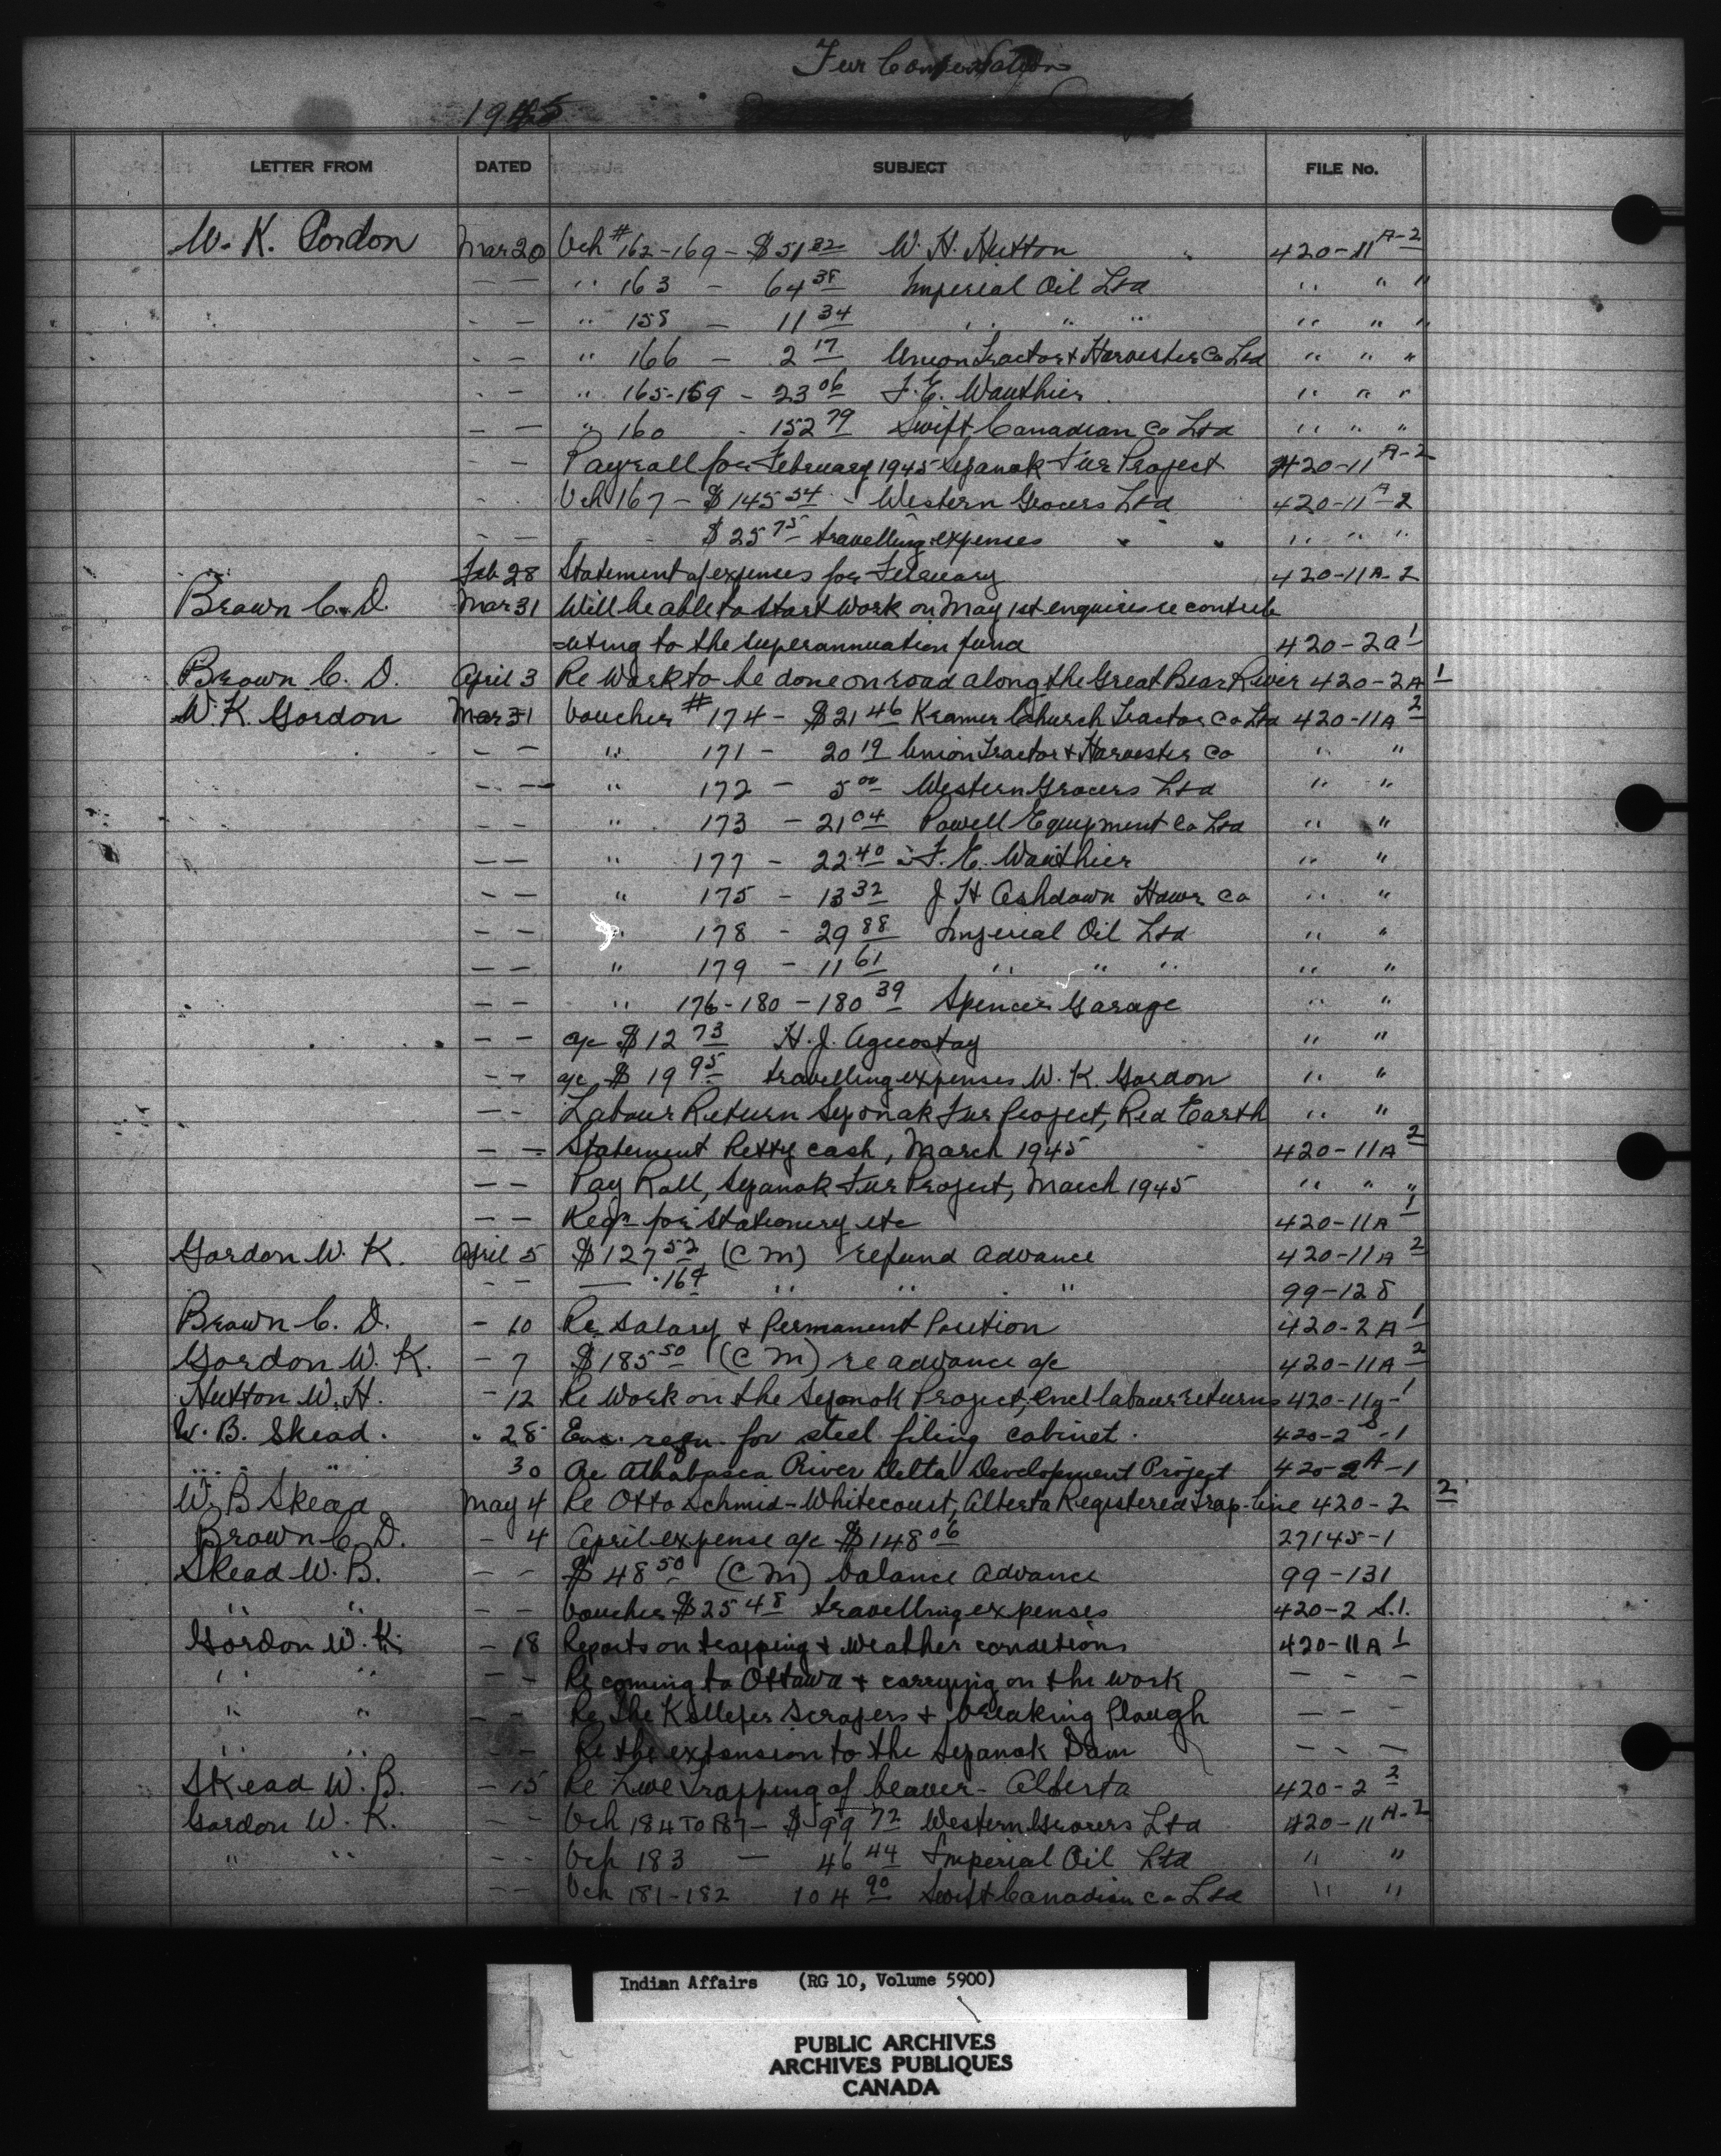 Fur Conservation
1945
LETTER FROM DATED SUBJECT FILE No.
W. K. Gordon Mar 20 Vch # 162-169 - $51 82 W. H. Hutton 420-11 A-2
— — " 163 - 64 38 Imperial Oil Ltd " " "
- - " 158 - 11 34 " " " " " "
- - " 166 - 2 17 Union Tractor & Harvester Co Ltd " " "
- - " 165-159 - 23 06 F. E. Wauthier " " "
- - " 160 - 152 79 Swift Canadian Co Ltd " " "
- - Payroll for February 1945 Sepanok Fur Project 420-11 A-2
- - Vch 167 - $145 54 - Western Grocers Ltd 420-11 A-2
- - - $25 75 travelling expenses " " " "
Feb 28 Statement of expenses for February 420-11A-2
Brown C. D. Mar 31 Will be able to start work on May 1st enquires re contrib
-uting to the superannuation fund 420-2A 1
Brown C. D. April 3 Re Work to be done on road along the Great Bear River 420-2A 1
W. K. Gordon Mar 31 Voucher # 174 - $21 46 Kramer Church Tractor Co Ltd 420-11A 2
- - " 171 - 20 19 Union Tractor & Harvester Co " "
- - " 172 - 5 00 Western Grocers Ltd " "
- - " 173 - 21 04 Powell Equipment Co Ltd " "
- - " 177 - 22 40 - F. E. Wauthier " "
- - " 175 - 13 32 J H Ashdown Hdwr Co " "
- - " 178 - 29 88 Imperial Oil Ltd " "
- - " 179 - 11 61 " " " " "
- - " 176-180 - 180 39 Spencer Garage " "
- - a/c $12 73 H. J. " "
- - a/c $19 95 travelling expenses W. K. Gordon " "
- - Labour Return Sepanok Fur Project, Red Earth " "
- - Statement Petty cash, March 1945 420-11A 2
- - Pay Roll, Sepanok Fur Project, March 1945 " " "
- - Reqn for Stationery etc 420-11A 1
Gordon W. K. April 5 $127 52 (C M) refund advance 420-11A 2
- - — .16¢ " " " 99-128
Brown C. D. - 10 Re. Salary & Permanent Position 420-2A 1
Gordon W. K. - 7 $185 50 (C M) re advance a/c 420-11A 2
Hutton W. H. - 12 Re Work on the Sepanok Project, encl labour returns 420-11A-1
W. B. Skead. " 28 Enc. reqn. for steel filing cabinet. 420-2 S-1
" " " 30 Re Athabasca River Delta Development Project 420-2 A-1
W. B Skead May 4 Re Otto Schmid - Whitecourt, Alberta Registered Trap-line 420-2 2
Brown C. D. - 4 April expense a/c $148 06 27145-1
Skead W. B. - - $48 50 (C M) balance advance 99-131
" " - - Voucher $25 48 travelling expenses 420-2 S.1.
Gordon W. K. - 18 Reports on trapping & weather conditions 420-11A 1
" " - - Re coming to Ottawa & carrying on the work - - -
" " - - Re the Killefer Scrapers & breaking Plough - - -
" " - - Re the extension to the Sepanok Dam - - -
Skead W. B. - 15 Re Live Trapping of beaver - Alberta 420-2 2
Gordon W. K. - - Vch 184 TO 187 - $99 72 Western Grocers Ltd 420-11 A-2
" " - - Vch 183 - 46 44 Imperial Oil Ltd " "
- - Vch 181-182 104 90 Swift Canadian Co Ltd " "
Indian Affairs (RG 10, Volume 5900)
PUBLIC ARCHIVES
ARCHIVES PUBLIQUES
CANADA